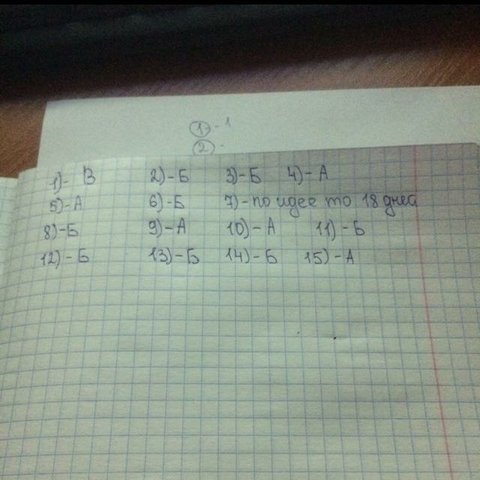 1) - 1
2) -
1)- В 2)-Б 3)-Б 4)-А
5)-А 6)-Б 7)-по идее то 18 дней
8)-Б 9)-А 10)-А 11)-Б
12)-Б 13)-Б 14)-Б 15)-А